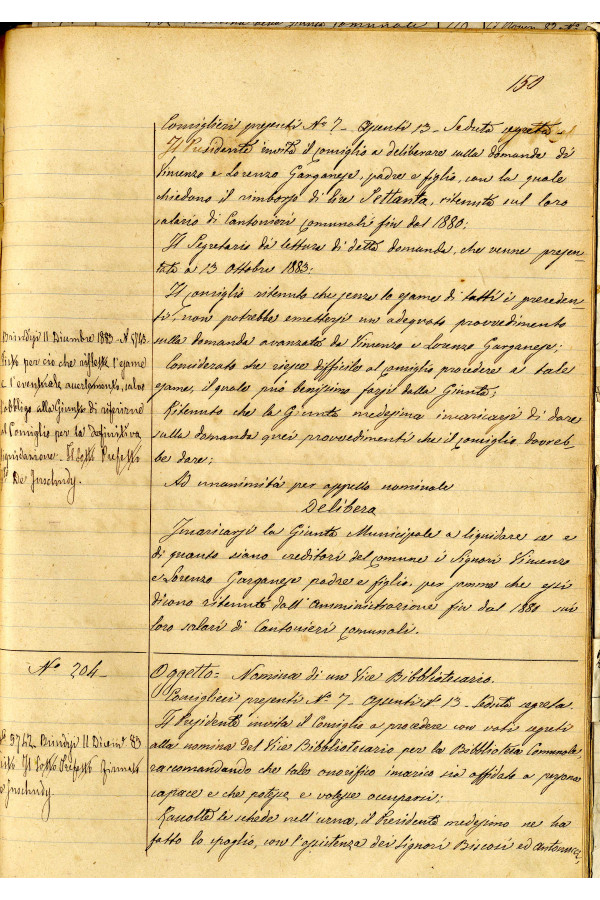 150
Consiglieri presenti N° 7 - Assenti 13 - Seduta segreta -
Il Presidente invita il Consiglio a deliberare sulla domanda di
Vincenzo e Lorenzo Garganese, padre e figlio, con la quale
chiedono il rimborso di lire Settanta, ritenute sul loro
salario di Cantonieri comunali fin dal 1880;
Il Segretario dà lettura di detta domanda, che venne presen-
tata a 13 Ottobre 1883;
Il Consiglio ritenuto che senza lo esame di tutti i preceden-
ti, non potrebbe emettersi un adeguato provvedimento
sulla domanda avanzata da Vincenzo e Lorenzo Garganese;
Considerato che riesce difficile al Consiglio procedere a tale
esame, il quale può benissimo farsi dalla Giunta;
Ritenuto che la Giunta medesima incaricarsi di dare
sulla domanda quei provvedimenti che il Consiglio dovreb-
be dare;
Ad unanimità per appello nominale
Delibera
Incaricarsi la Giunta Municipale a liquidare se e
di quanto siano creditori del Comune i Signori Vincenzo
e Lorenzo Garganese padre e figlio, per somma che essi
dicono ritenuta dall'Amministrazione fin dal 1880 sui
loro salari di Cantonieri comunali.
Brindisi 11 Dicembre 1883 - N. 5743
Visto per ciò che riflette l'esame
e l'eventuale accertamento, salvo
l'obbligo alla Giunta di riferirne
al Consiglio per la definitiva
liquidazione - Il Sotto Prefetto
De
N° 204 -
Oggetto = Nomina di un Vice Bibbliotecario.
Consiglieri presenti N° 7 - Assenti N° 13 - Seduta segreta.
Il Presidente invita il Consiglio a procedere con voti segreti
alla nomina del Vice Bibbliotecario per la Bibblioteca Comunale,
raccomandando che tale onorifico incarico sia affidato a persona
capace e che potesse e volesse occuparsi;
Raccolte le schede nell'urna, il Presidente medesimo ne ha
fatto lo spoglio, con l'assistenza dei Signori Biscosi ed
N° 5742 Brindisi 11 Dicem. 83
Visto Il Sotto Prefetto firmato